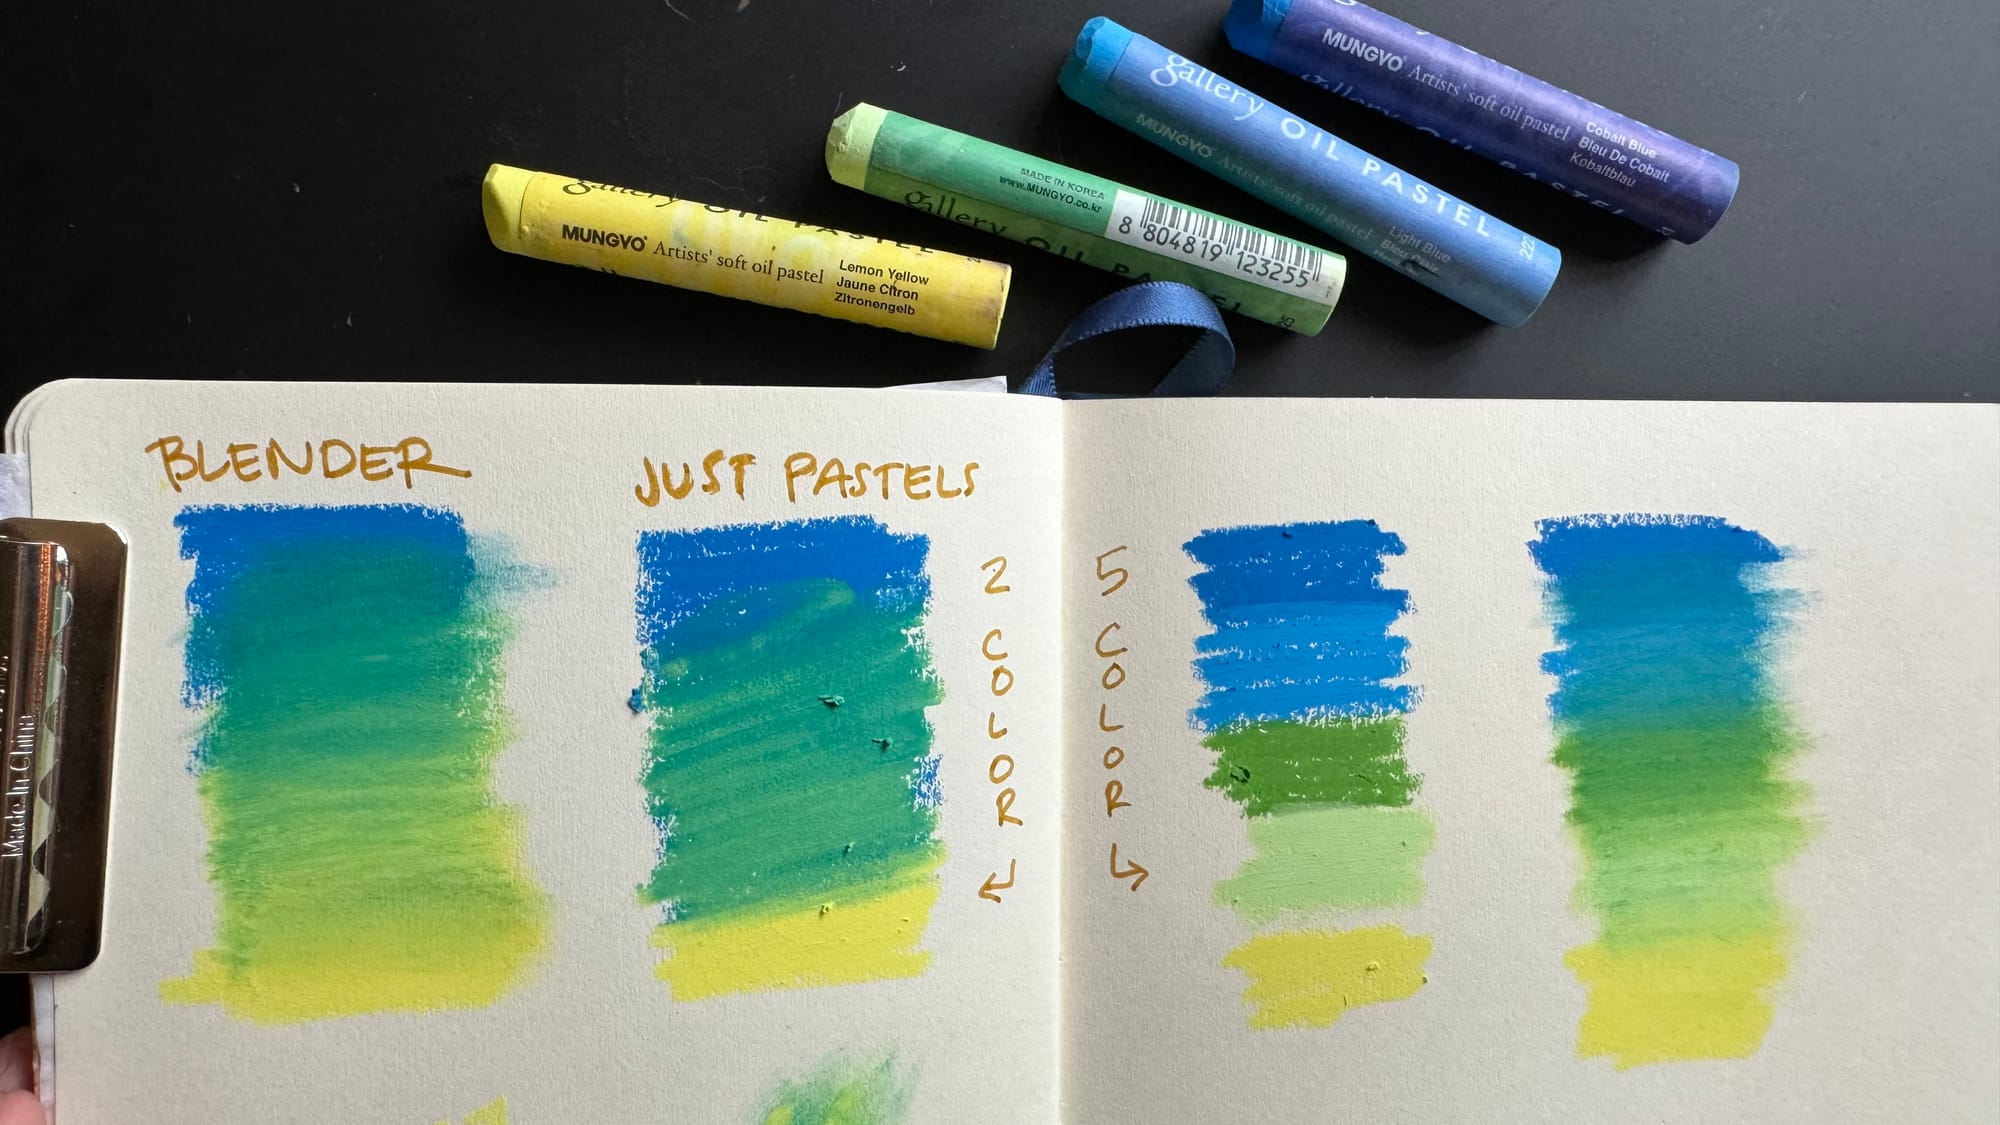 MUNGYO Artists' soft oil pastel
Cobalt Blue
Bleu De Cobalt
Kobaltblau
gallery OIL PASTEL
MUNGYO Artists' soft oil pastel
Light Blue
222
MADE IN KOREA
www.MUNGYO.co.kr
8 804819 123255
gallery OIL PASTEL
gallery OIL PASTEL
MUNGYO Artists' soft oil pastel
Lemon Yellow
Jaune Citron
Zitronengelb
BLENDER
JUST PASTELS
2 COLOR
5 COLOR
Made in China